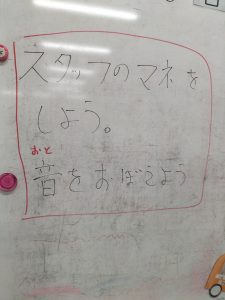 スタッフのマネを
しよう。
おと
音をおぼえよう